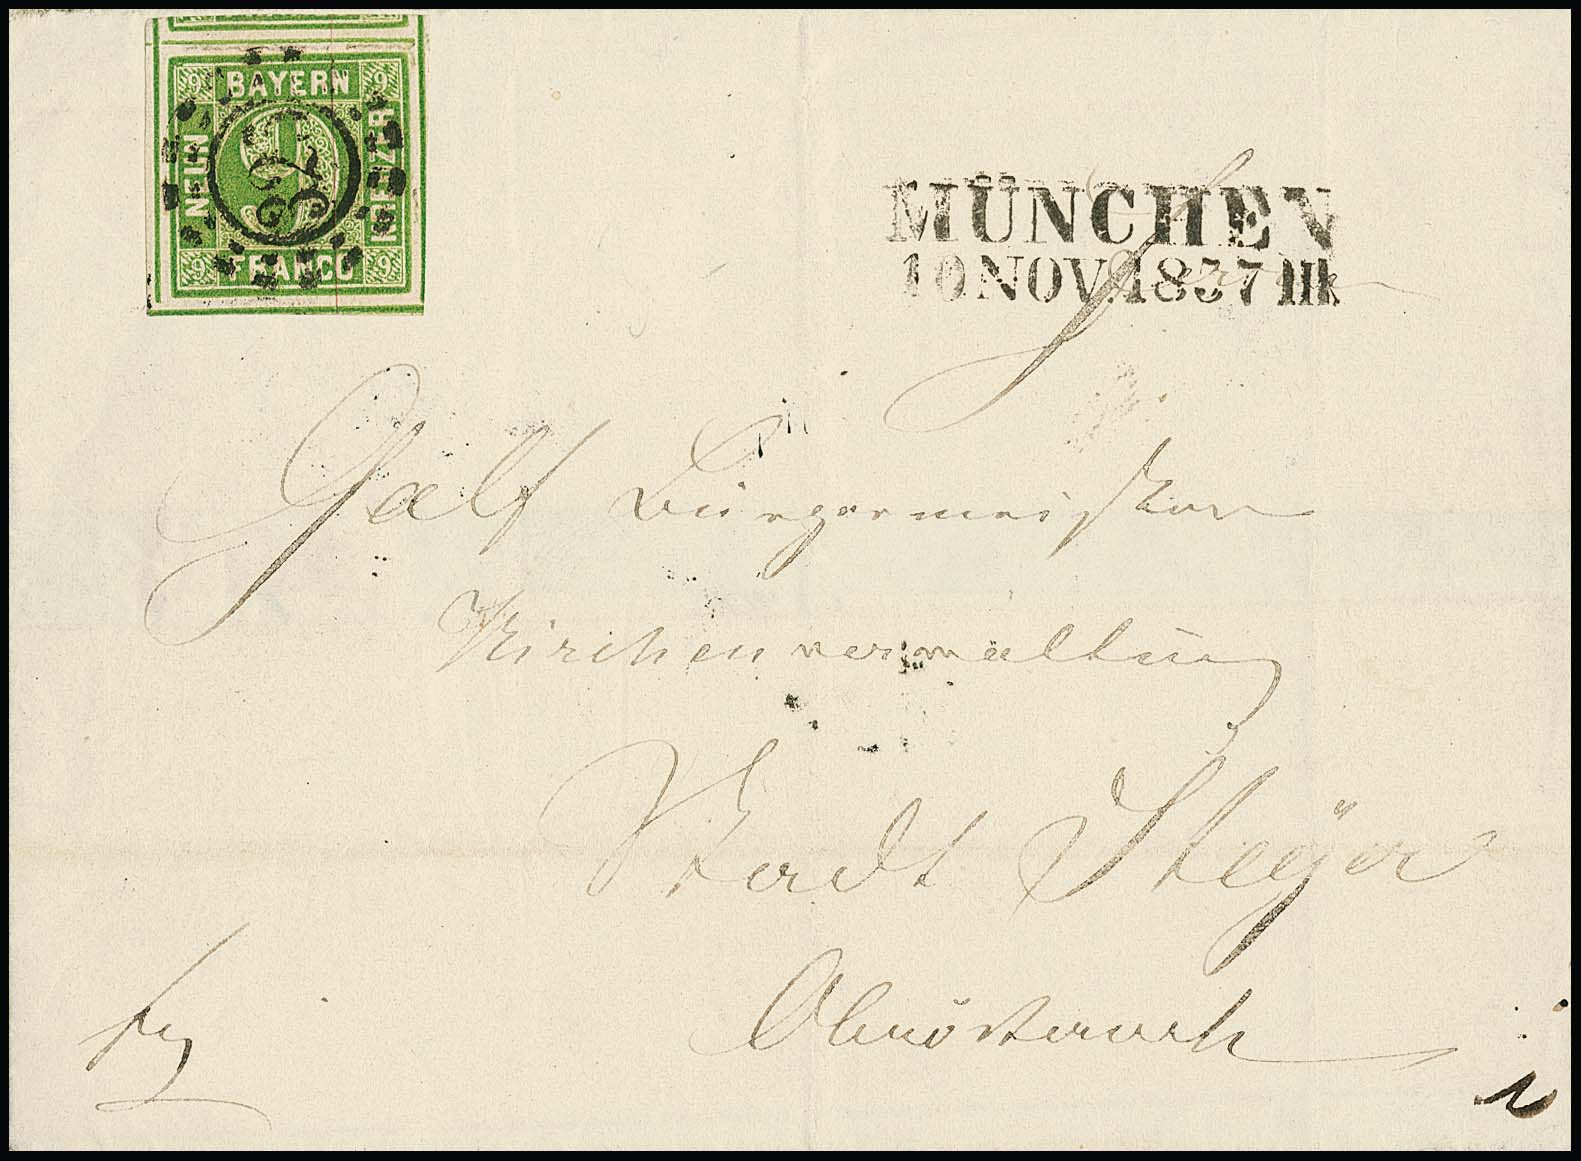 9 BAYERN 9
NEUN 9 KREUZER
9 FRANCO 9
MÜNCHEN
10 NOV. 1857 III
Bürgermeister
Kirchenverwaltung
Stadt Steÿer
Oberösterreich